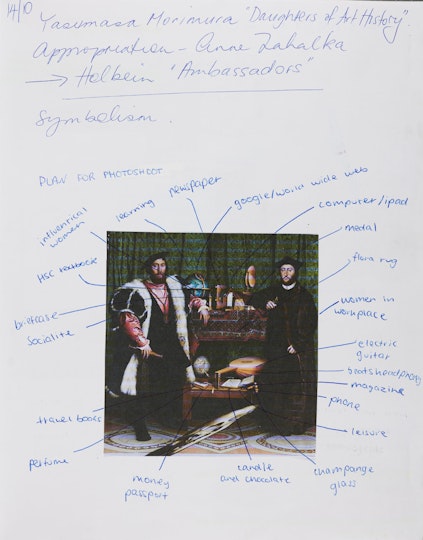 14/10
Yasumasa Morimura "Daughters of Art History".
Appropriation - Anne Zahalka
→ Holbein "Ambassadors"
Symbolism.
PLAN FOR PHOTOSHOOT
newspaper
learning
google/world wide web
influential
women
computer/ipad
medal
HSC textbook
flora rug
briefcase
women in
workplace
socialite
electric
guitar
magazine
phone
travel books
leisure
perfume
money
passport
candle
and chocolate
champange
glass